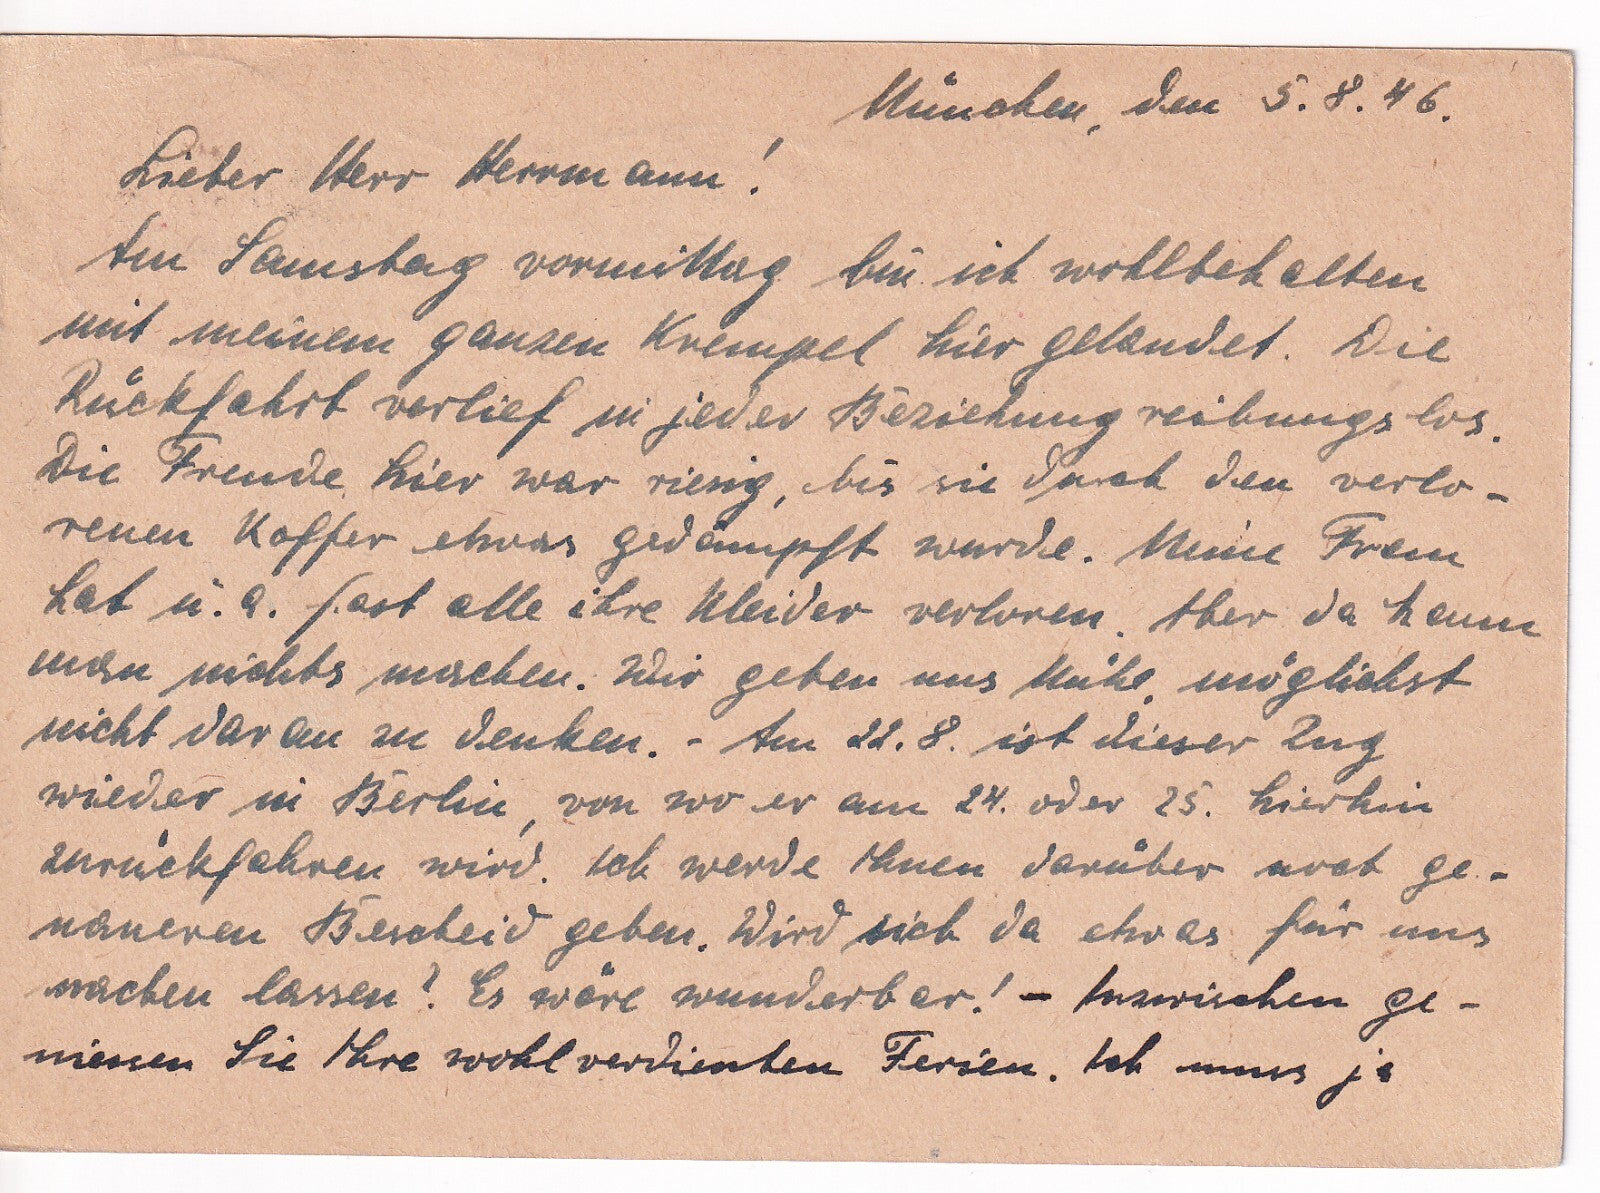 München, den 5.8.46.
Lieber Herr Herrmann!
Am Samstag vormittag bin ich wohlbehalten
mit meinem ganzen Krempel hier gelandet. Die
Rückfahrt verlief in jeder Beziehung reibungslos.
Die Freude hier war riesig, bis sie durch den verlo-
renen Koffer etwas gedämpft wurde. Meine Frau
hat u. a. fast alle ihre Kleider verloren. Aber da kann
man nichts machen. Wir geben uns Mühe, möglichst
nicht daran zu denken. - Am 22.8. ist dieser Zug
wieder in Berlin, von wo er am 24. oder 25. hierhin
zurückfahren wird. Ich werde Ihnen darüber noch ge-
naueren Bescheid geben. Wird sich da etwas für uns
machen lassen? Es wäre wunderbar! - Inzwischen ge-
niessen Sie Ihre wohlverdienten Ferien. Ich muss ja